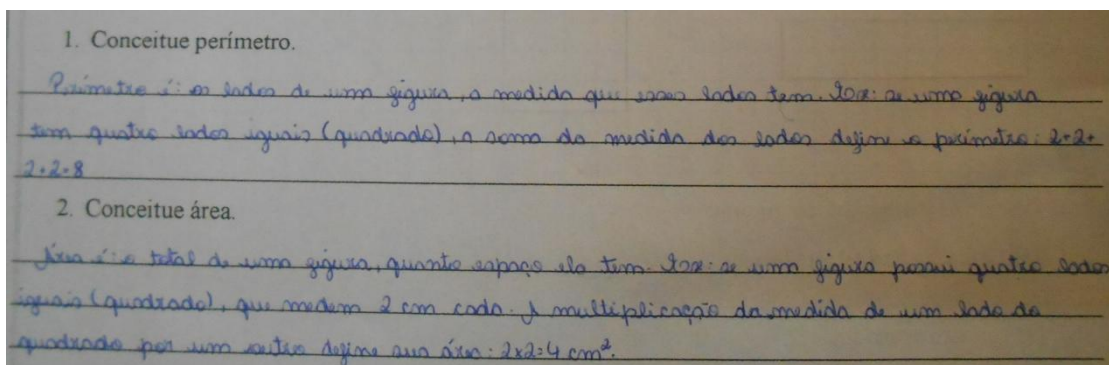 1. Conceitue perímetro.
Perímetro é: os lados de uma figura, a medida que esses lados tem. Ex: se uma figura
tem quatro lados iguais (quadrado), a soma da medida dos lados define o perímetro: 2+2+
2+2=8
2. Conceitue área.
Área é: o total de uma figura, quanto espaço ela tem. Ex: se uma figura possui quatro lados
iguais (quadrado), que medem 2 cm cada. A multiplicação da medida de um lado do
quadrado por um outro define sua área: 2x2=4 cm².